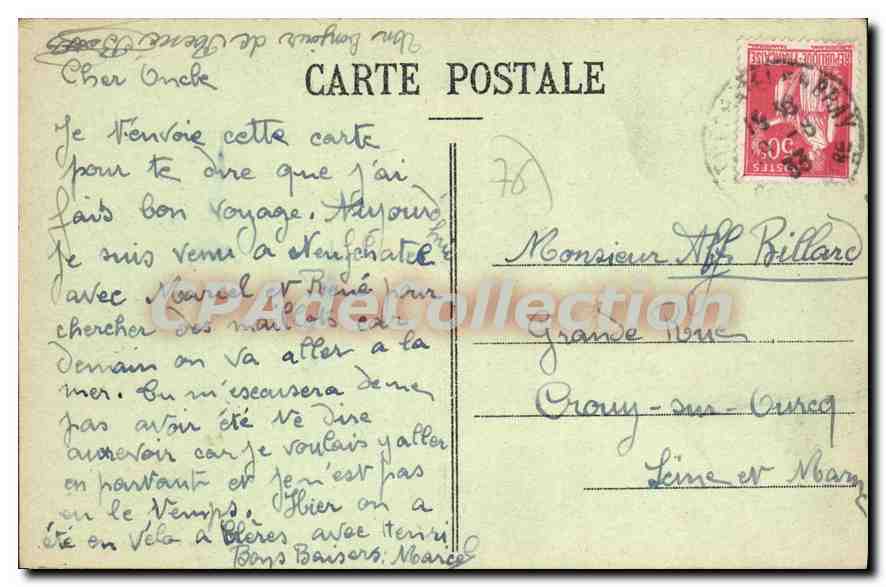 Un bonjour de René B
CARTE POSTALE
Cher Oncle
Je t'envoie cette carte
pour te dire que j'ai
fais bon voyage. Aujourd'hui
je suis venu a Neufchatel
avec Marcel et René pour
chercher des maillots car
demain on va aller a la
mer. Tu m'escusera de ne
pas avoir été te dire
aurevoir car je voulais y aller
en partant et je n'est pas
eu le temps. Hier on a
été en Vélo a Clères avec Henri
Bons Baisers. Marcel
76
REPUBLIQUE FRANÇAISE
50c
POSTES
Monsieur Alf Billard
Grande Rue
Crouy-sur-Ourcq
Seine et Marne
CPArteCollection